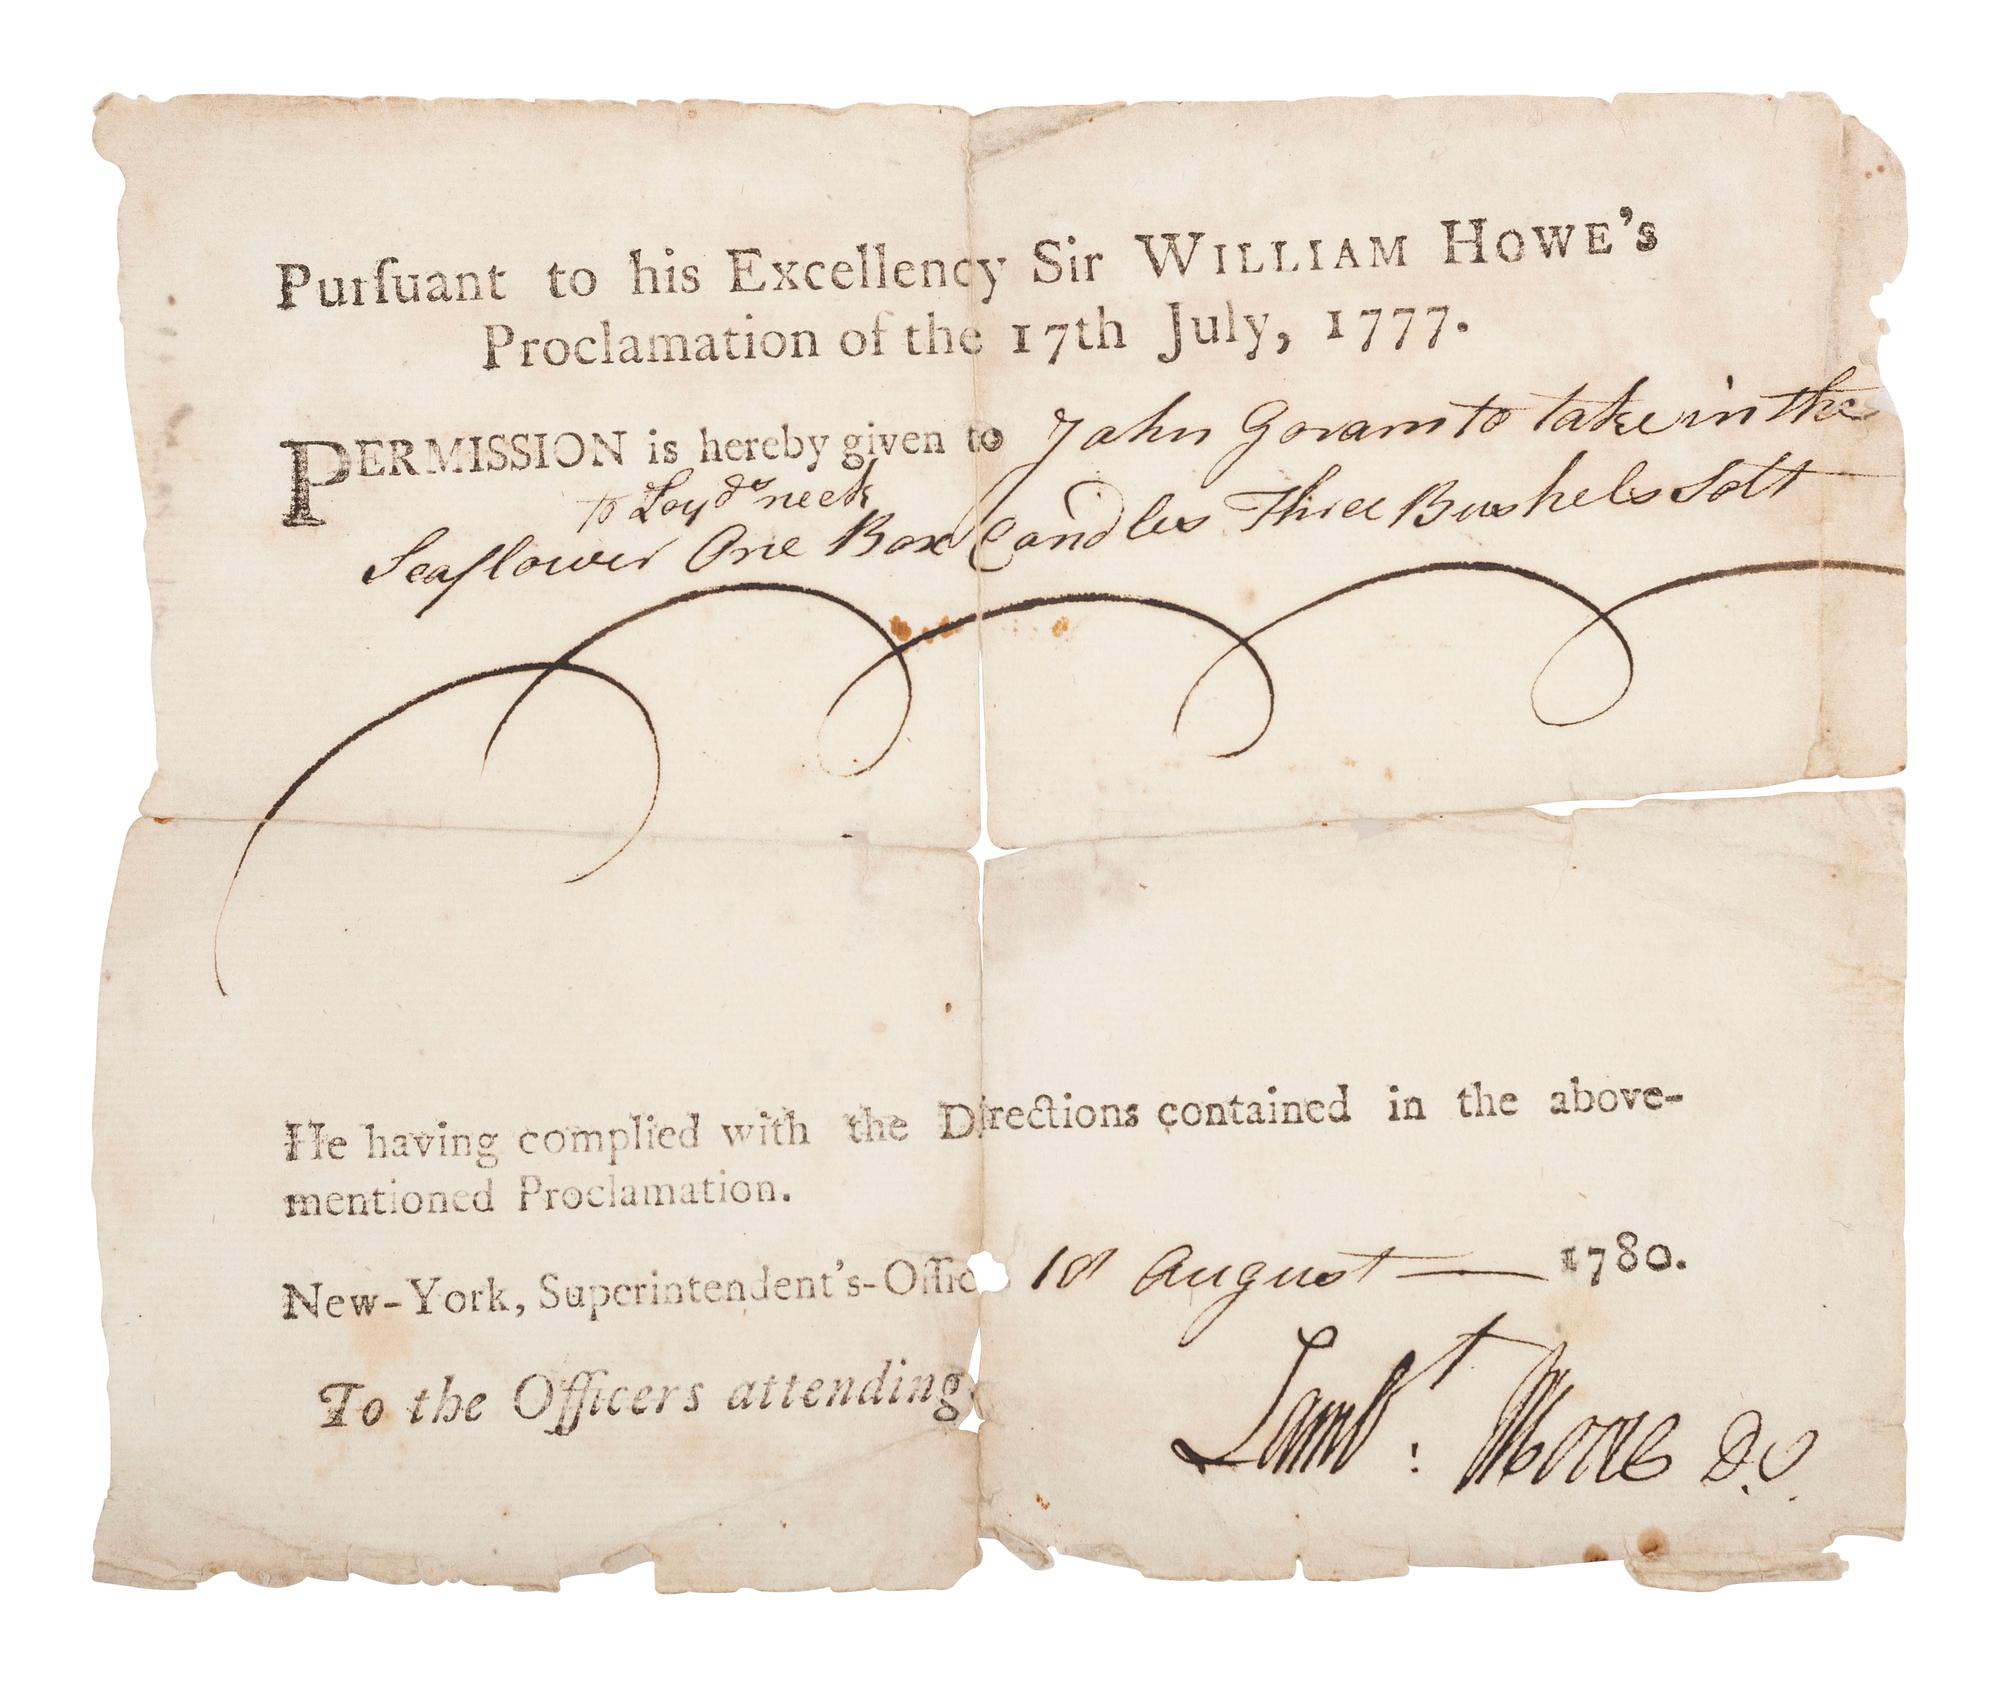 Purſuant to his Excellency Sir WILLIAM HOWE's
Proclamation of the 17th July, 1777.
PERMISSION is hereby given to John Goram to take in the
to Loyds neck
Seaflower One Box Candles Three Bushels Salt
He having complied with the Directions contained in the above-
mentioned Proclamation.
New-York, Superintendent's-Offic 18 August 1780.
To the Officers attending
Lambt: Moore D.S.